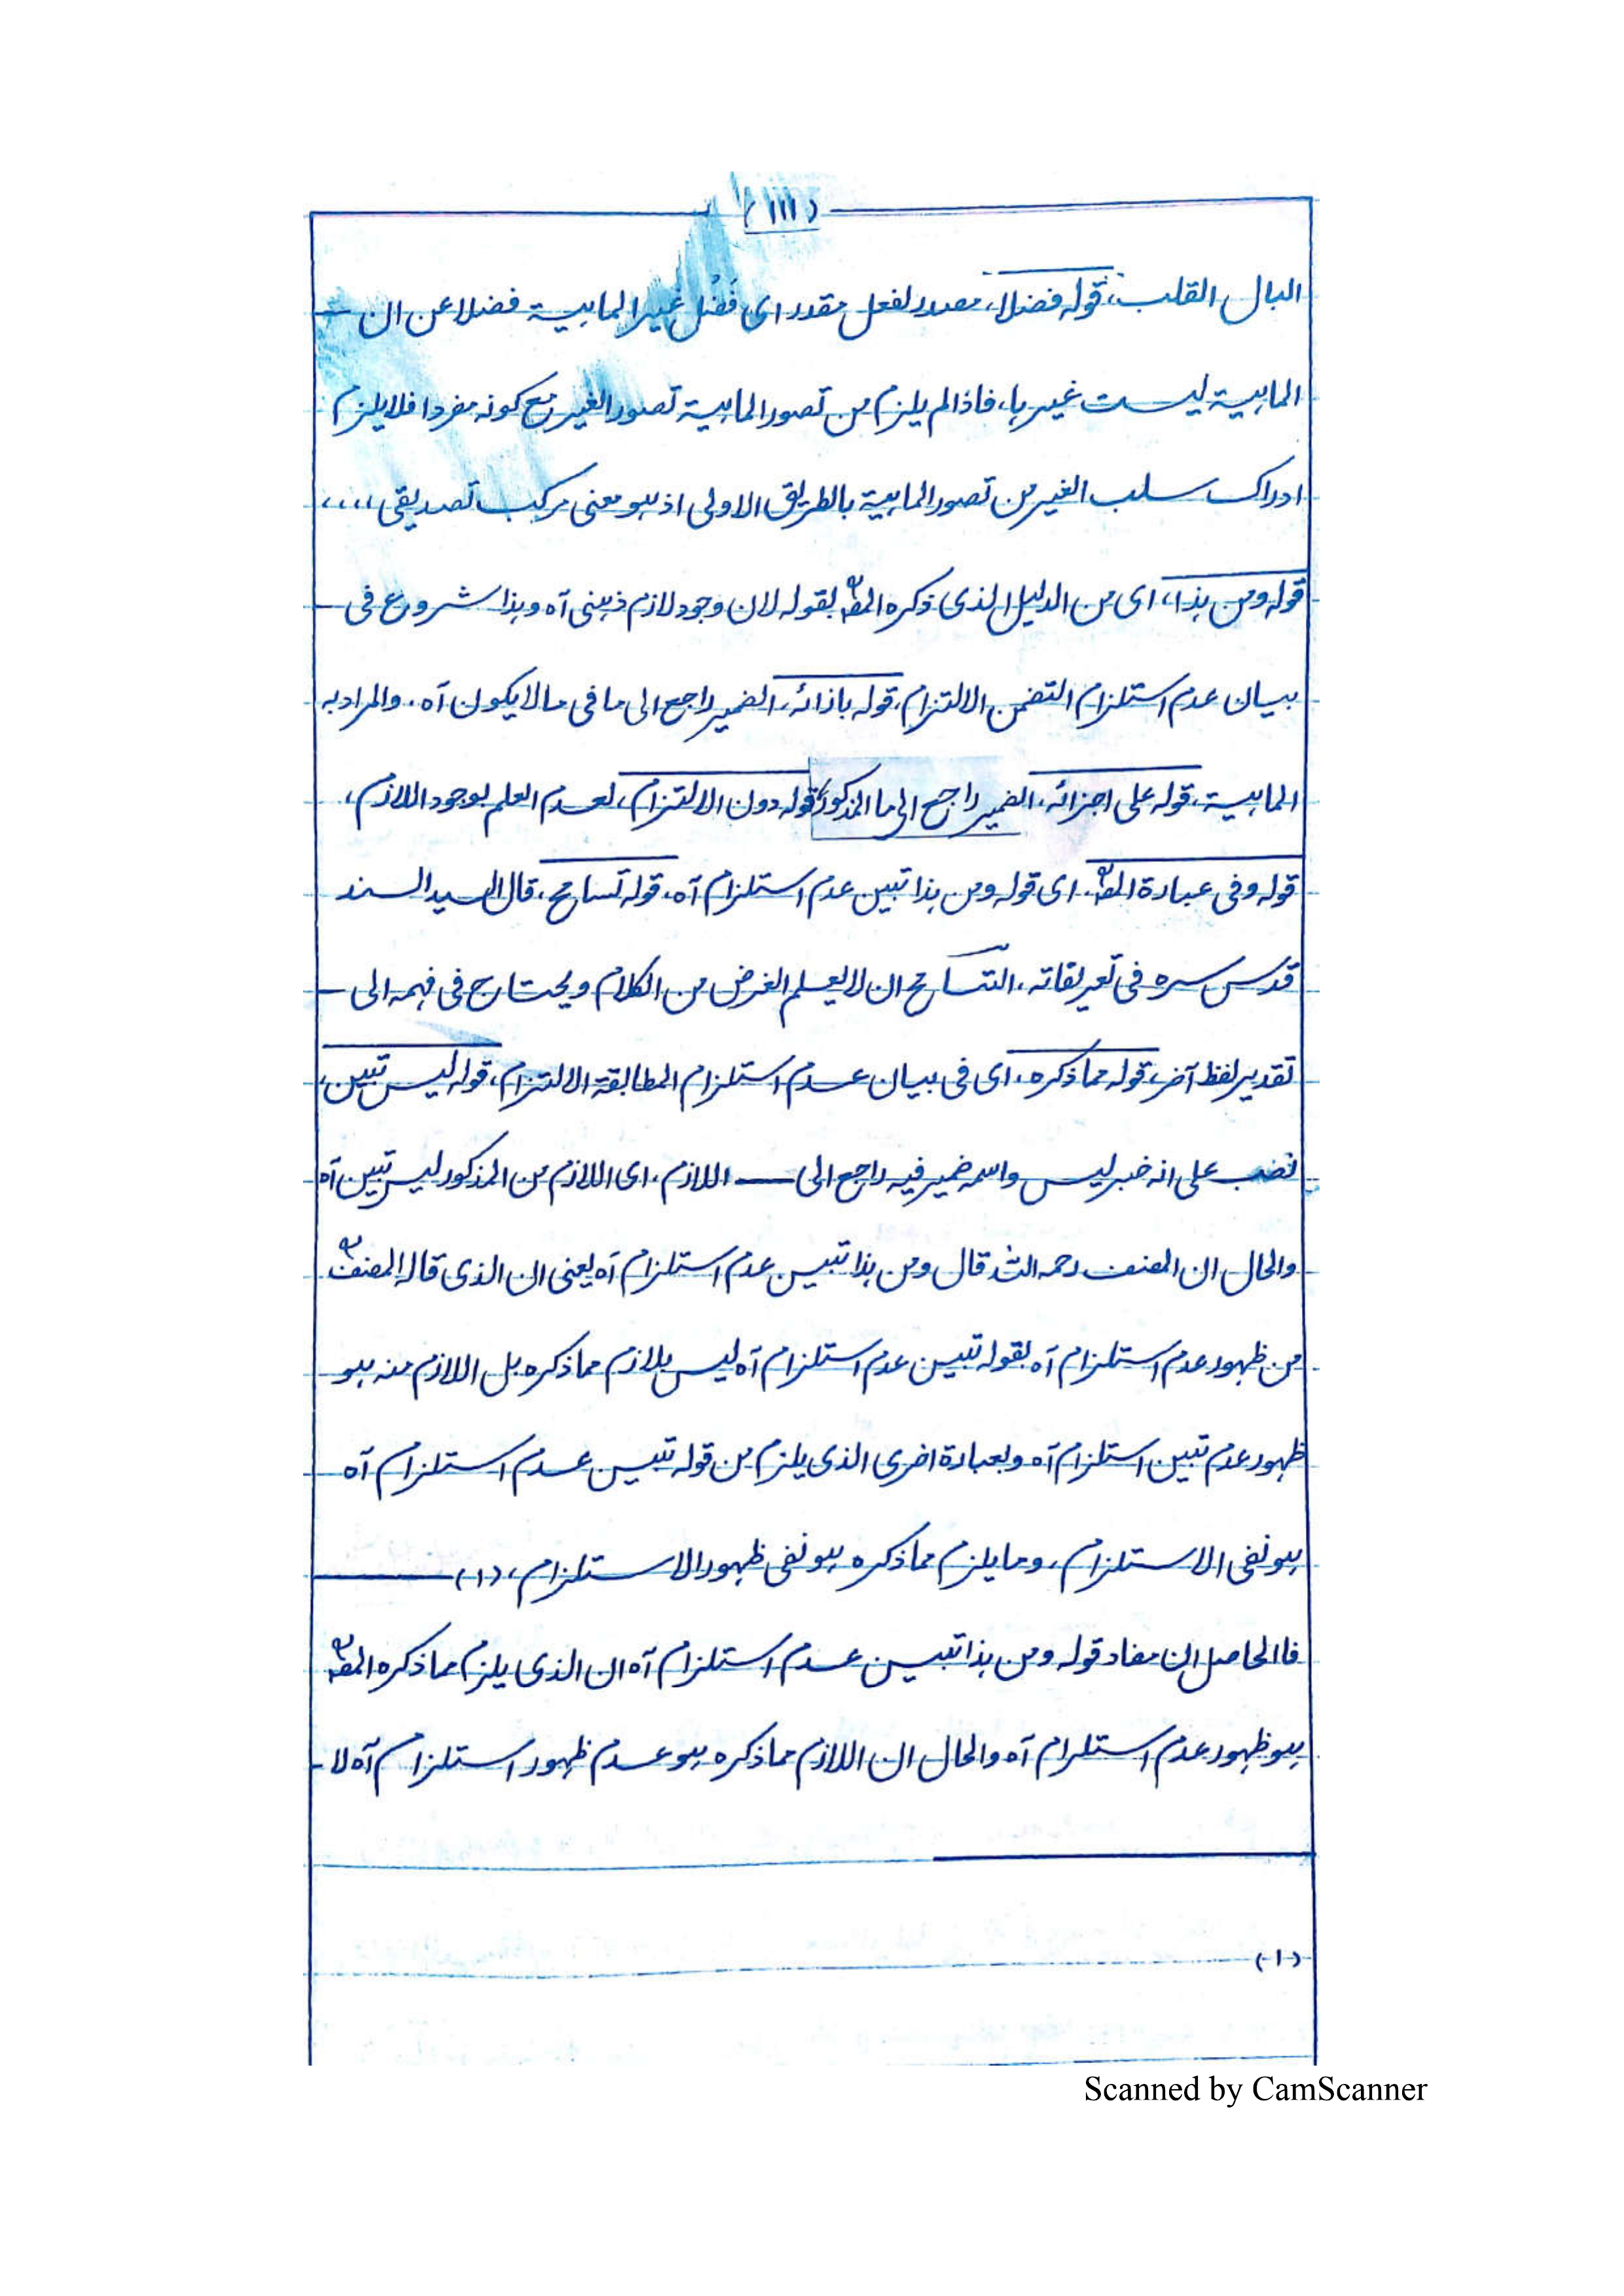 (١١١)
البال القلب، قوله فضلا، مصدر لفعل مقدر اى فَضُل غير الماهية فضلا عن ان
الماهية ليست غيرها، فاذا لم يلزم من تصور الماهية تصور الغير مع كونه مفردا فلا يلزم
ادراك سلب الغير من تصور الماهية بالطريق الاولى اذ هو معنى مركب تصديقى ،،،،
قوله ومن هذا، اى من الدليل الذى ذكره المصؒ بقوله لان وجود لازم ذهنى آه وهذا شروع فى
بيان عدم استلزام التضمن الالتزام، قوله بازائه، الضمير راجع الى ما فى ما لا يكون آه. والمراد به
الماهية، قوله على اجزائه، الضمير راجع الى ما المذكور، قوله دون الالتزام، لعدم العلم بوجود اللازم،
قوله وفى عبارة المصؒ. اى قوله ومن هذا تبين عدم استلزام آه، قوله تسامح، قال السيد السند
قدس سره فى تعريفاته، التسامح ان لا يعلم الغرض من الكلام ويحتاج فى فهمه الى
تقدير لفظ آخر، قوله مما ذكره، اى فى بيان عدم استلزام المطابقة الالتزام، قوله ليس تبين،
نصب على انه خبر ليس واسمه ضمير فيه راجع الى — اللازم، اى اللازم من المذكور ليس تبين آه
والحال ان المصنف رحمه الله قال ومن هذا تبين عدم استلزام آه يعنى ان الذى قاله المصنفؒ
من ظهور عدم استلزام آه بقوله تبين عدم استلزام آه ليس بلازم مما ذكره بل اللازم منه هو
ظهور عدم تبين استلزام آه وبعبارة اخرى الذى يلزم من قوله تبين عدم استلزام آه
هو نفى الاستلزام، وما يلزم مما ذكره هو نفى ظهور الاستلزام، (١)
فاالحاصل ان مفاد قوله ومن هذا تبين عدم استلزام آه ان الذى يلزم مما ذكره المصؒ
هو ظهور عدم استلزام آه والحال ان اللازم مما ذكره هو عدم ظهور استلزام آه لا
(١)
Scanned by CamScanner